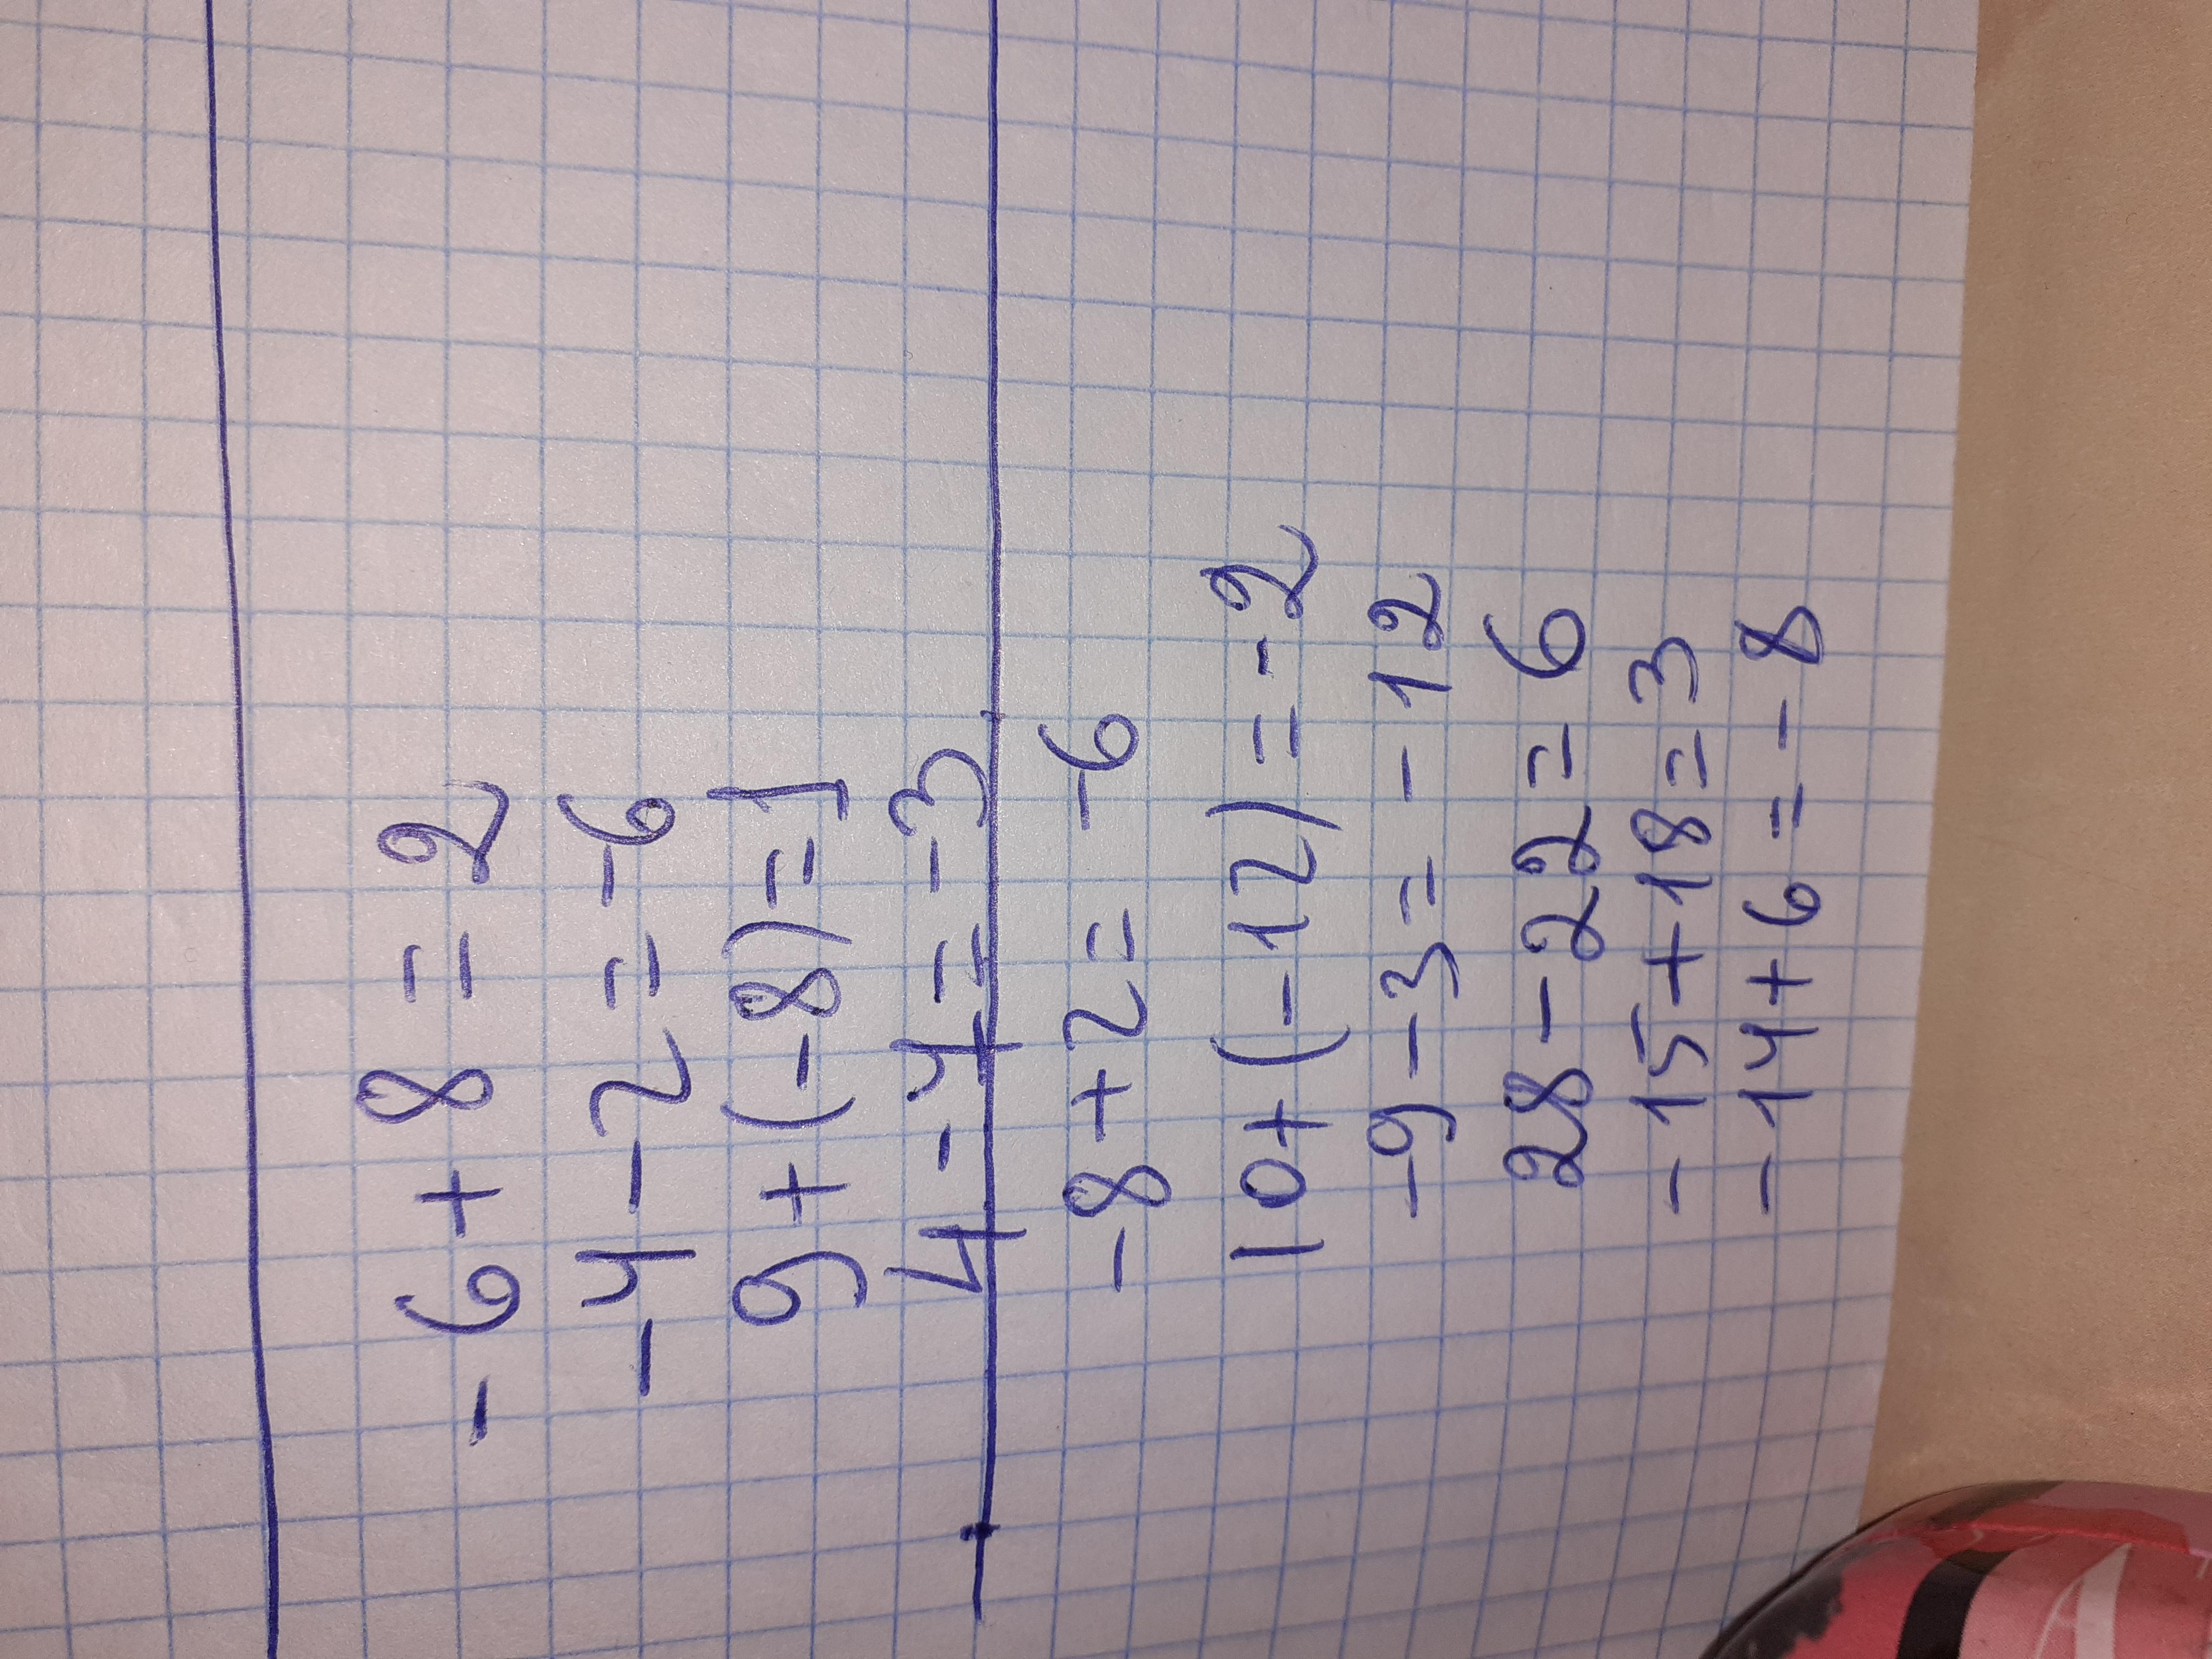 -6+8=2
-4-2=-6
9+(-8)=1
4-4=-3
-8+2=-6
10+(-12)=-2
-9-3=-12
28-22=6
-15+18=3
-14+6=-8